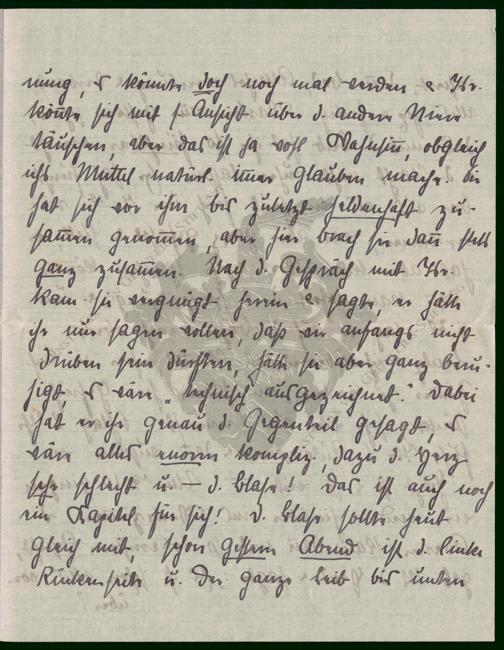 nung, es könnte doch noch mal werden & Hr.
könnte sich mit s. Ansicht über d. andere Niere
täuschen, aber das ist ja voll Wahnsinn, obgleich
ichs Muttel natürl. immer glauben mache. Sie
hat sich vor ihm bis zuletzt heldenhaft zu-
sammen genommen, aber hier brach sie dann stets
ganz zusammen. Nach d. Gespräch mit Hr.
kam sie vergnügt herein & sagte, er hätte
ihr nur sagen wollen, daß wir anfangs nicht
drüben sein dürften, hätte sie aber ganz beru-
higt, es wäre "technisch ausgezeichnet." Dabei
hat er ihr genau d. Gegenteil gesagt, es
wäre alles enorm kompliz., dazu d. Herz
sehr schlecht u. — d. Blase! Das ist auch noch
ein Kapitel für sich! D. Blase sollte heut
gleich mit, schon gestern Abend ist d. linke
Rückenseite u. der ganze Leib bis unten